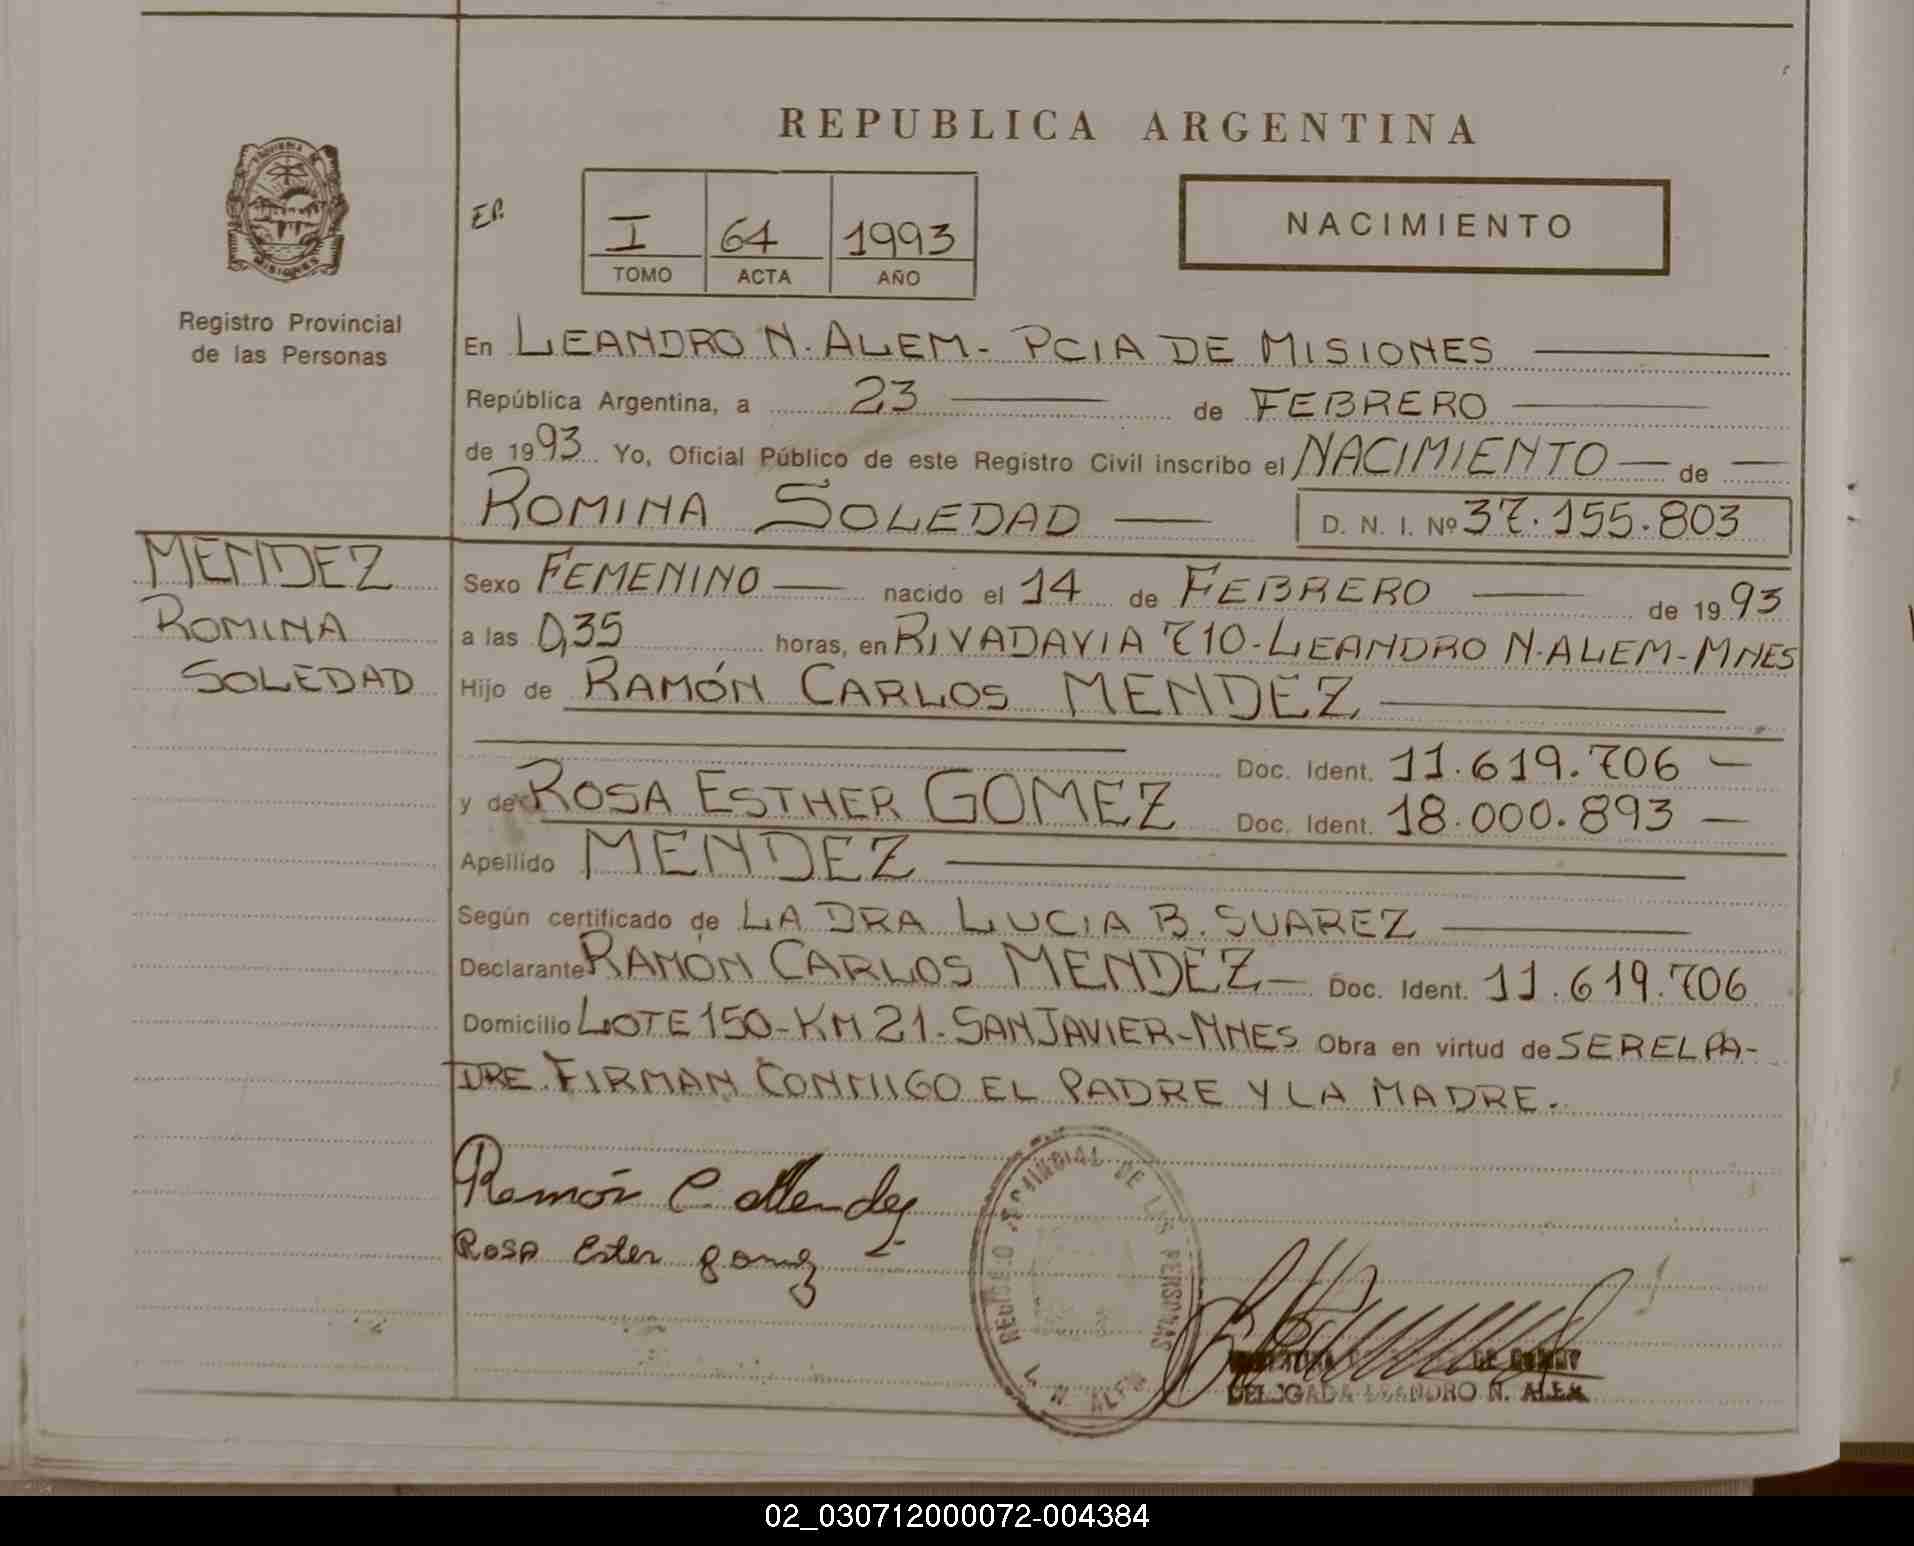 REPUBLICA ARGENTINA
PROVINCIA DE
MISIONES
Registro Provincial
de las Personas
I 64 1993
TOMO ACTA AÑO
NACIMIENTO
En LEANDRO N. ALEM - PCIA DE MISIONES
República Argentina, a 23 de FEBRERO
de 1993 Yo, Oficial Público de este Registro Civil inscribo el NACIMIENTO de
ROMINA SOLEDAD D. N. I. Nº 37.155.803
MENDEZ
ROMINA
SOLEDAD
Sexo FEMENINO nacido el 14 de FEBRERO de 1993
a las 0,35 horas, en RIVADAVIA 710 - LEANDRO N. ALEM - MNES
Hijo de RAMÓN CARLOS MENDEZ
Doc. Ident. 11.619.706
y de ROSA ESTHER GOMEZ Doc. Ident. 18.000.893
Apellido MENDEZ
Según certificado de LA DRA LUCIA B. SUAREZ
Declarante RAMÓN CARLOS MENDEZ - Doc. Ident. 11.619.706
Domicilio LOTE 150 - KM 21 - SAN JAVIER - MNES Obra en virtud de SER EL PA-
DRE. FIRMAN CONMIGO EL PADRE Y LA MADRE.
Ramón C Mendez
Rosa Ester gomez
REGISTRO PROVINCIAL DE LAS PERSONAS
L. N. ALEM
DE
DELEGADA LEANDRO N. ALEM
02_030712000072-004384